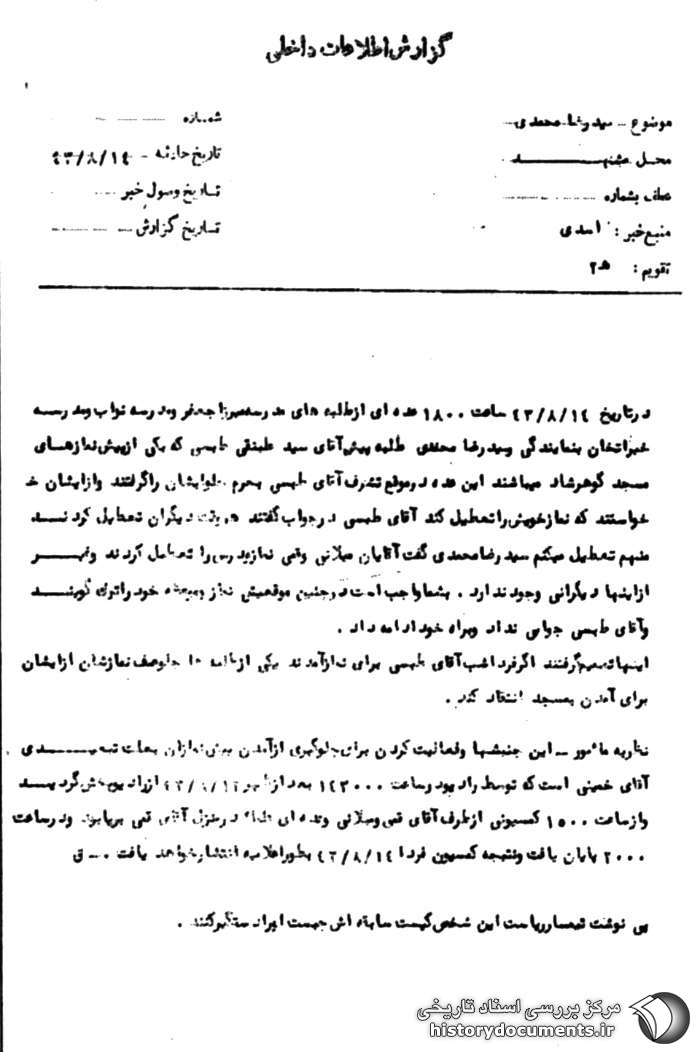 گزارش اطلاعات داخلی
موضوع – سید رضا محمدی
شماره
محل مشهد
تاریخ حادثه – ۴۳/۸/۱۴
عطف بشماره
تاریخ وصول خبر
منبع خبر : اسدی
تاریخ گزارش
تقویم : ۲ ه
در تاریخ ۴۳/۸/۱۴ ساعت ۱۸۰۰ عده ای از طلبه های مدرسه میرزا جعفر و مدرسه نواب و مدرسه
خیراتخان بنمایندگی سید رضا محمدی طلبه پیش آقای سید طبسی که یکی از پیش نمازهای
مسجد گوهرشاد میباشند این عده در موقع تشرف آقای طبسی بحرم جلو ایشان را گرفتند و از ایشان خ
خواستند که نماز خویش را تعطیل کند آقای طبسی در جواب گفتند هر وقت دیگران تعطیل کردنـــد
منهم تعطیل میکنم سید رضا محمدی گفت آقایان میلانی و قمی نماز و درس را تعطیل کردند و غیـــر
از اینها دیگرانی وجود ندارد . بشما واجب است در چنین موقعیتی نماز خود را ترک گوینـــد
و آقای طبسی جوابی نداد و براه خود ادامه داد .
اینها تصمیم گرفتند اگر فردا شب آقای طبسی برای نماز آمدند یکی از طلبه ها جلو صف نمازشان از ایشان
برای آمدن بمسجد انتقاد کند .
نظریه مأمور – این جنبشها و فعالیت کردن برای جلوگیری از آمدن پیش نمازان بعلت تبعیـــدی
آقای خمینی است که توسط رادیو در ساعت بعد از ظهر از رادیو پخش گردیـــد
و از ساعت ۱۵۰۰ کمسیونی از طرف آقای قمی و میلانی و عده ای در منزل آقای قمی برپا بود و در ساعت
۲۰۰۰ پایان یافت و نتیجه کمسیون فردا ۴۳/۸/۱۴ بطور اعلامیه انتشار خواهد یافت . – ق
پی نوشت تیمسار ریاست این شخص کیست سابقه اش چیست
مرکز بررسی اسناد تاریخی
historydocuments.ir